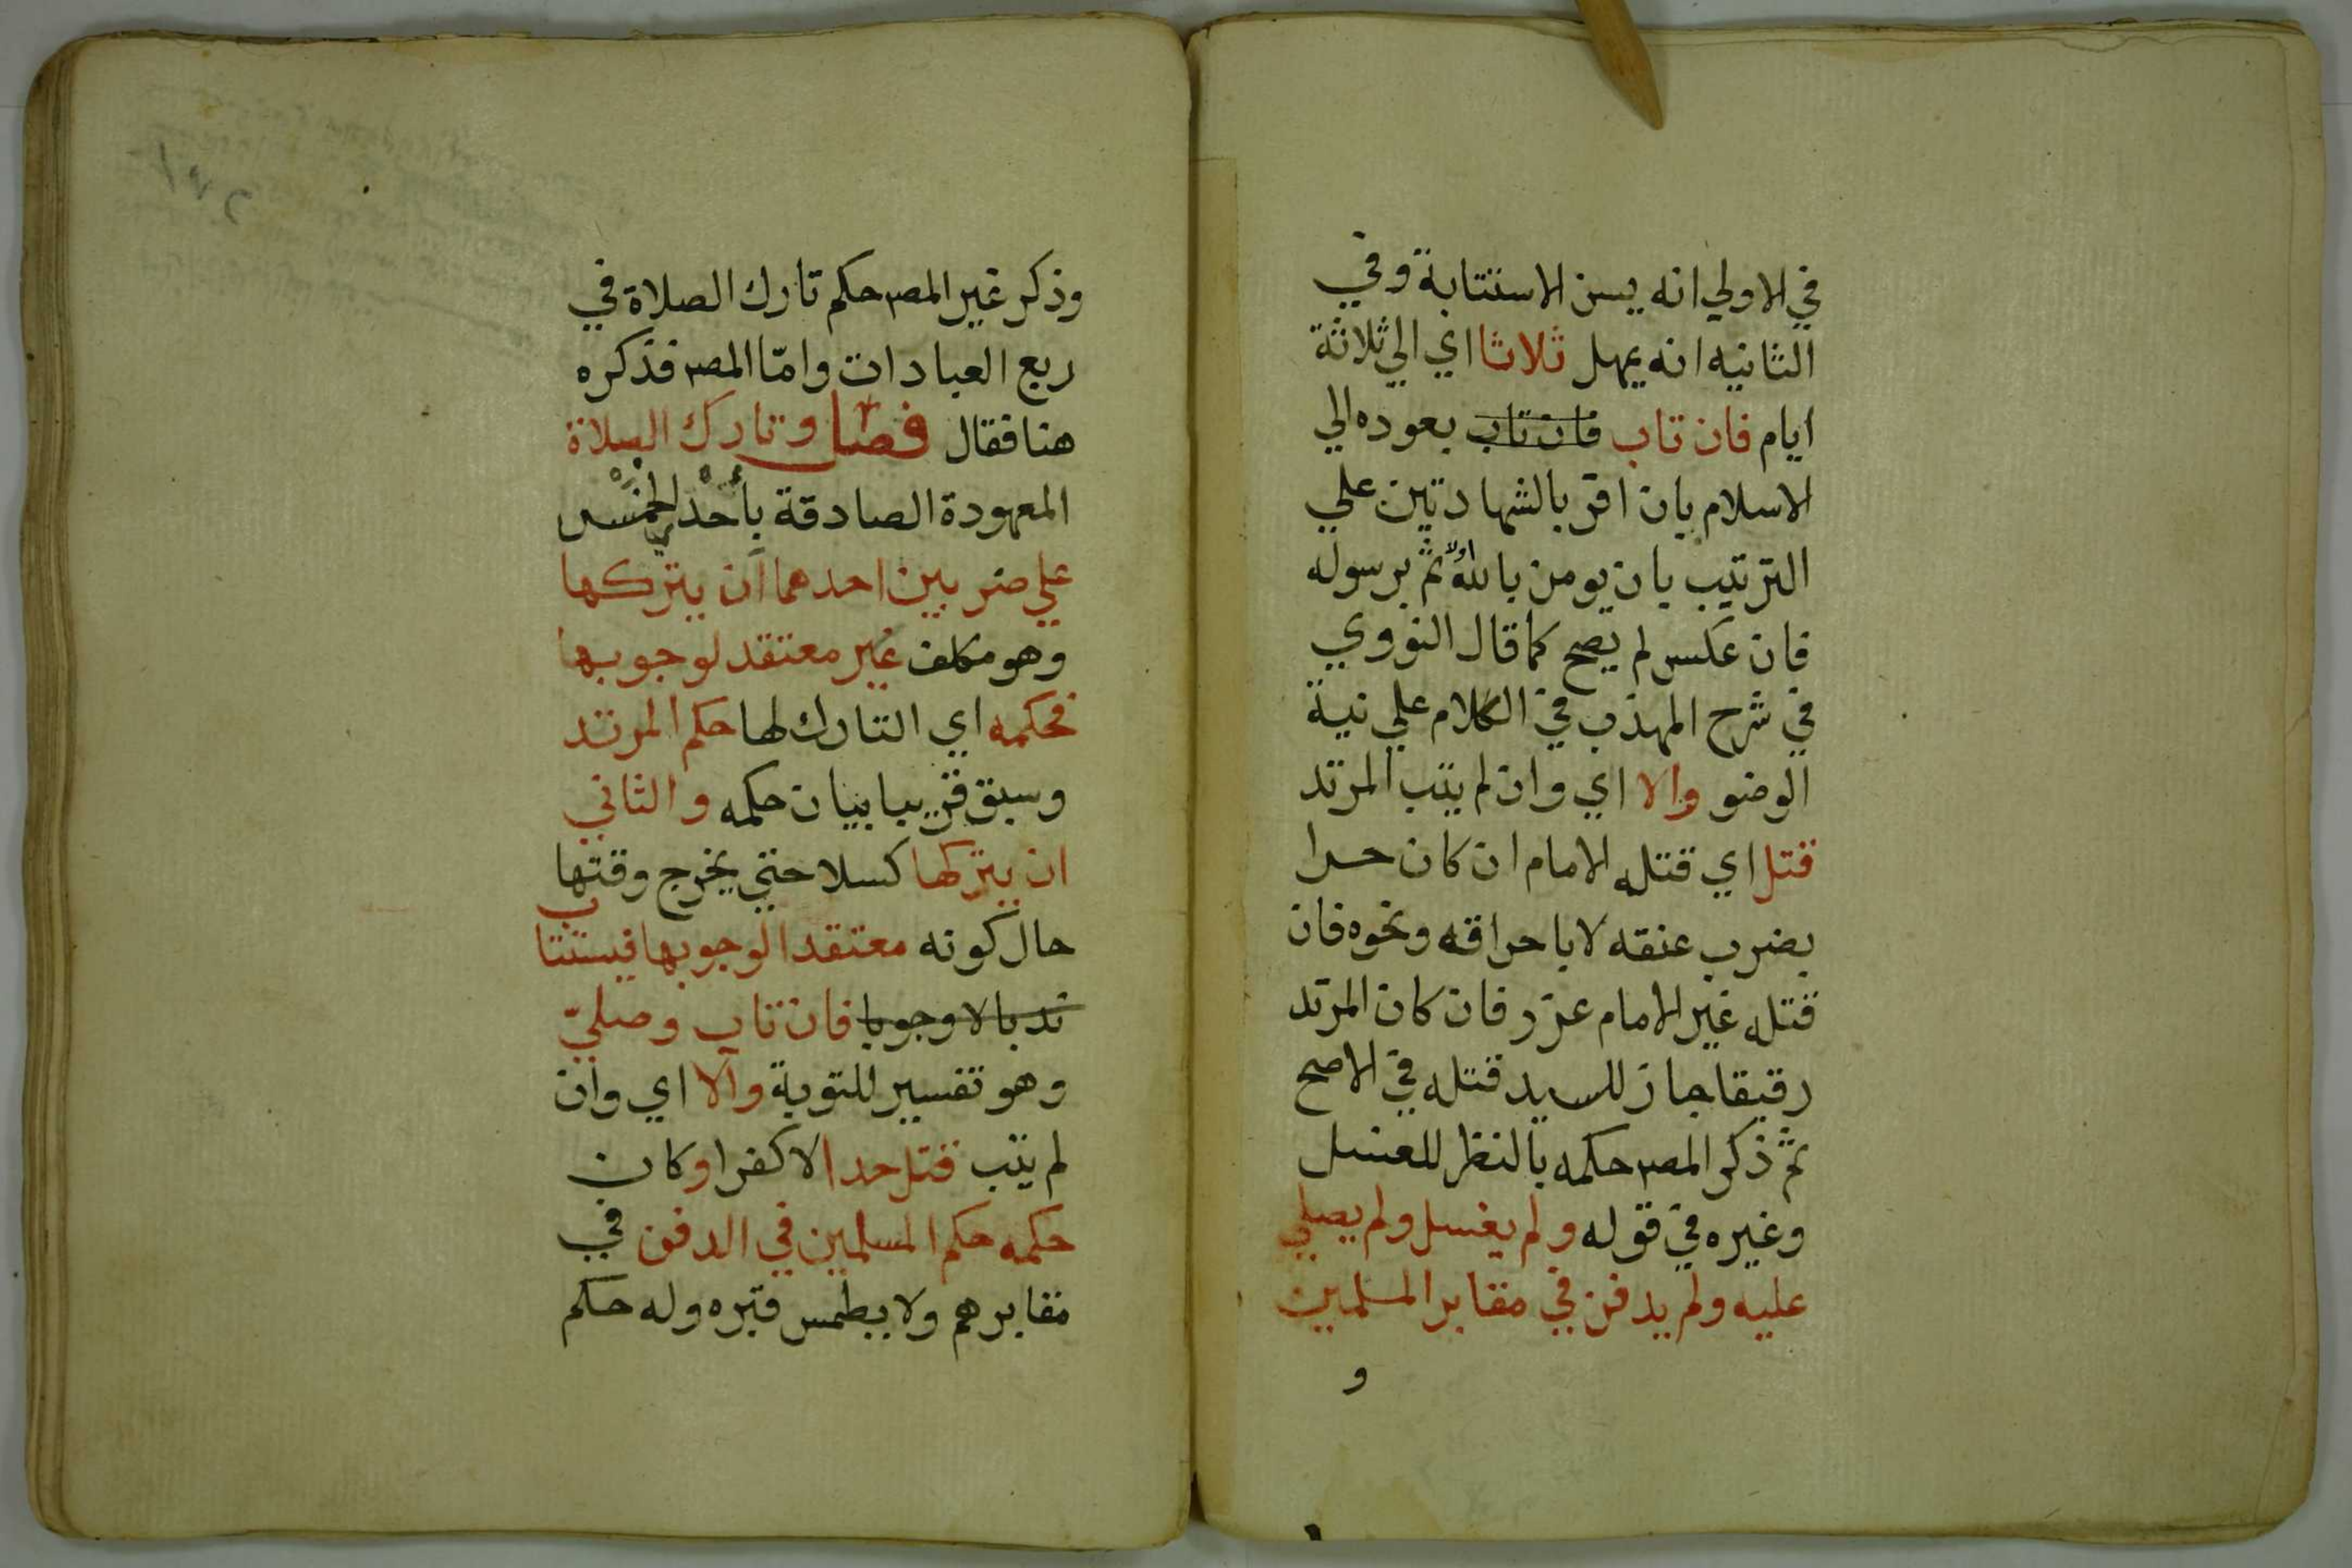 في الاولي انه يسن الاستتابة وفي
الثانيه انه يمهل ثلاثا اي الي ثلاثة
ايام فان تاب فان تاب بعوده الي
الاسلام بان اقر بالشهادتين علي
الترتيب بان يومن بالله اولا ثم برسوله
فان عكس لم يصح كما قال النووي
في شرح المهذب في الكلام علي نية
الوضو والا اي وان لم يتب المرتد
قتل اي قتله الامام ان كان حرا
بضرب عنقه لا باحراقه ونحوه فان
قتله غير الامام عزر فان كان المرتد
رقيقا جاز للسيد قتله في الاصح
ثم ذكر المصـ حكمه بالنظر للغسل
وغيره في قوله ولم يغسل ولم يصلي
عليه ولم يدفن في مقابر المسلمين
و
وذكر غير المصـ حكم تارك الصلاة في
ربع العبادات وامّا المصـ فذكره
هنا فقال فصل وتارك الصلاة
المعهودة الصادقة بأحْدي الخمْس
علي ضربين احدهما ان يتركها
وهو مكلف غير معتقد لوجوبها
فحكمه اي التارك لها حكم المرتد
وسبق قريبا بيان حكمه والثاني
ان يتركها كسلا حتي يخرج وقتها
حال كونه معتقدا لوجوبها فيستتاب
ندبا لا وجوبا فان تاب وصليّ
وهو تفسير للتوبة والا اي وان
لم يتب قتل حدا لا كفرا وكان
حكمه حكم المسلمين في الدفن في
مقابرهم ولا يطمس قبره وله حكم